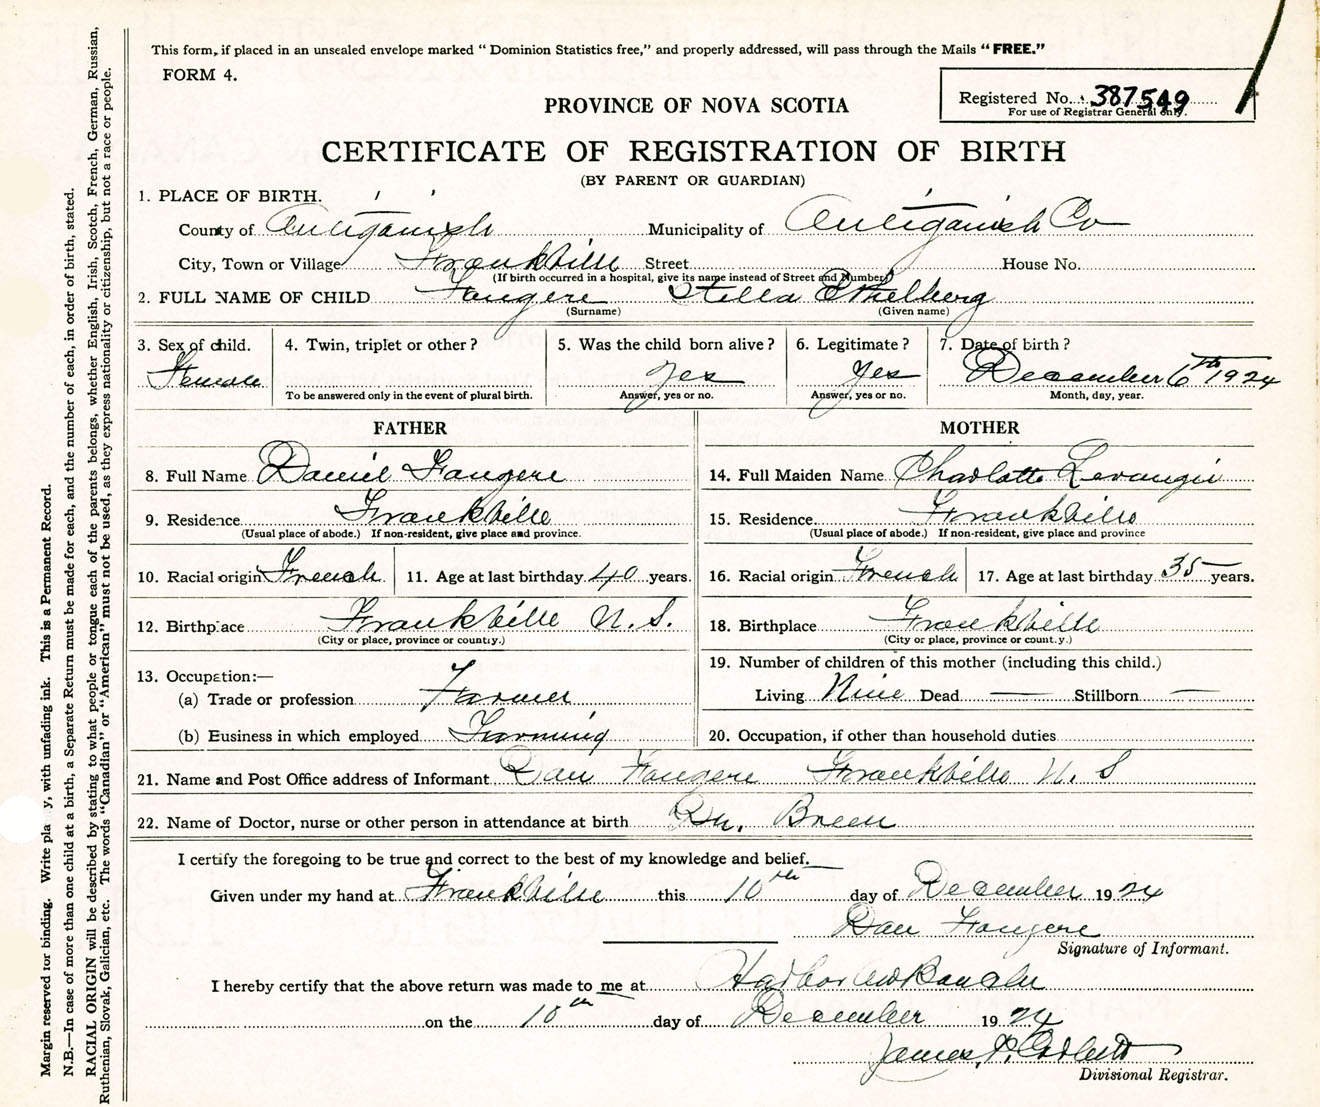 This form, if placed in an unsealed envelope marked "Dominion Statistics free," and properly addressed, will pass through the Mails "FREE."
FORM 4.
Registered No. 387549
For use of Registrar General only.
PROVINCE OF NOVA SCOTIA
CERTIFICATE OF REGISTRATION OF BIRTH
(BY PARENT OR GUARDIAN)
1. PLACE OF BIRTH.
County of Antiganish Municipality of Antiganish Co
City, Town or Village Frankville Street House No.
(If birth occurred in a hospital, give its name instead of Street and Number)
2. FULL NAME OF CHILD Fougere Stella Ethelberg
(Surname) (Given name)
3. Sex of child. 4. Twin, triplet or other? 5. Was the child born alive? 6. Legitimate? 7. Date of birth?
Female Yes Yes December 6th 1924
To be answered only in the event of plural birth. Answer, yes or no. Answer, yes or no. Month, day, year.
FATHER MOTHER
8. Full Name Daniel Fougere 14. Full Maiden Name Charlotte Levangie
9. Residence Frankville 15. Residence Frankville
(Usual place of abode.) If non-resident, give place and province. (Usual place of abode.) If non-resident, give place and province
10. Racial origin French 11. Age at last birthday 40 years. 16. Racial origin French 17. Age at last birthday 35 years.
12. Birthplace Frankville N.S. 18. Birthplace Frankville
(City or place, province or country.) (City or place, province or count.y.)
13. Occupation:— 19. Number of children of this mother (including this child.)
(a) Trade or profession Farmer Living Nine Dead — Stillborn —
(b) Business in which employed Farming 20. Occupation, if other than household duties
21. Name and Post Office address of Informant Dan Fougere Frankville N. S
22. Name of Doctor, nurse or other person in attendance at birth Dr. Breen
I certify the foregoing to be true and correct to the best of my knowledge and belief.
Given under my hand at Frankville this 10th day of December 1924
Dan Fougere
Signature of Informant.
I hereby certify that the above return was made to me at Harbor Au Bouche
on the 10th day of December 1924
James P. Corbett
Divisional Registrar.
Margin reserved for binding. Write pla y, with unfading ink. This is a Permanent Record.
N.B.—In case of more than one child at a birth, a Separate Return must be made for each, and the number of each, in order of birth, stated.
RACIAL ORIGIN will be described by stating to what people or tongue each of the parents belongs, whether English, Irish, Scotch, French, German, Russian,
Ruthenian, Slovak, Galician, etc. The words "Canadian" or "American" must not be used, as they express nationality or citizenship, but not a race or people.